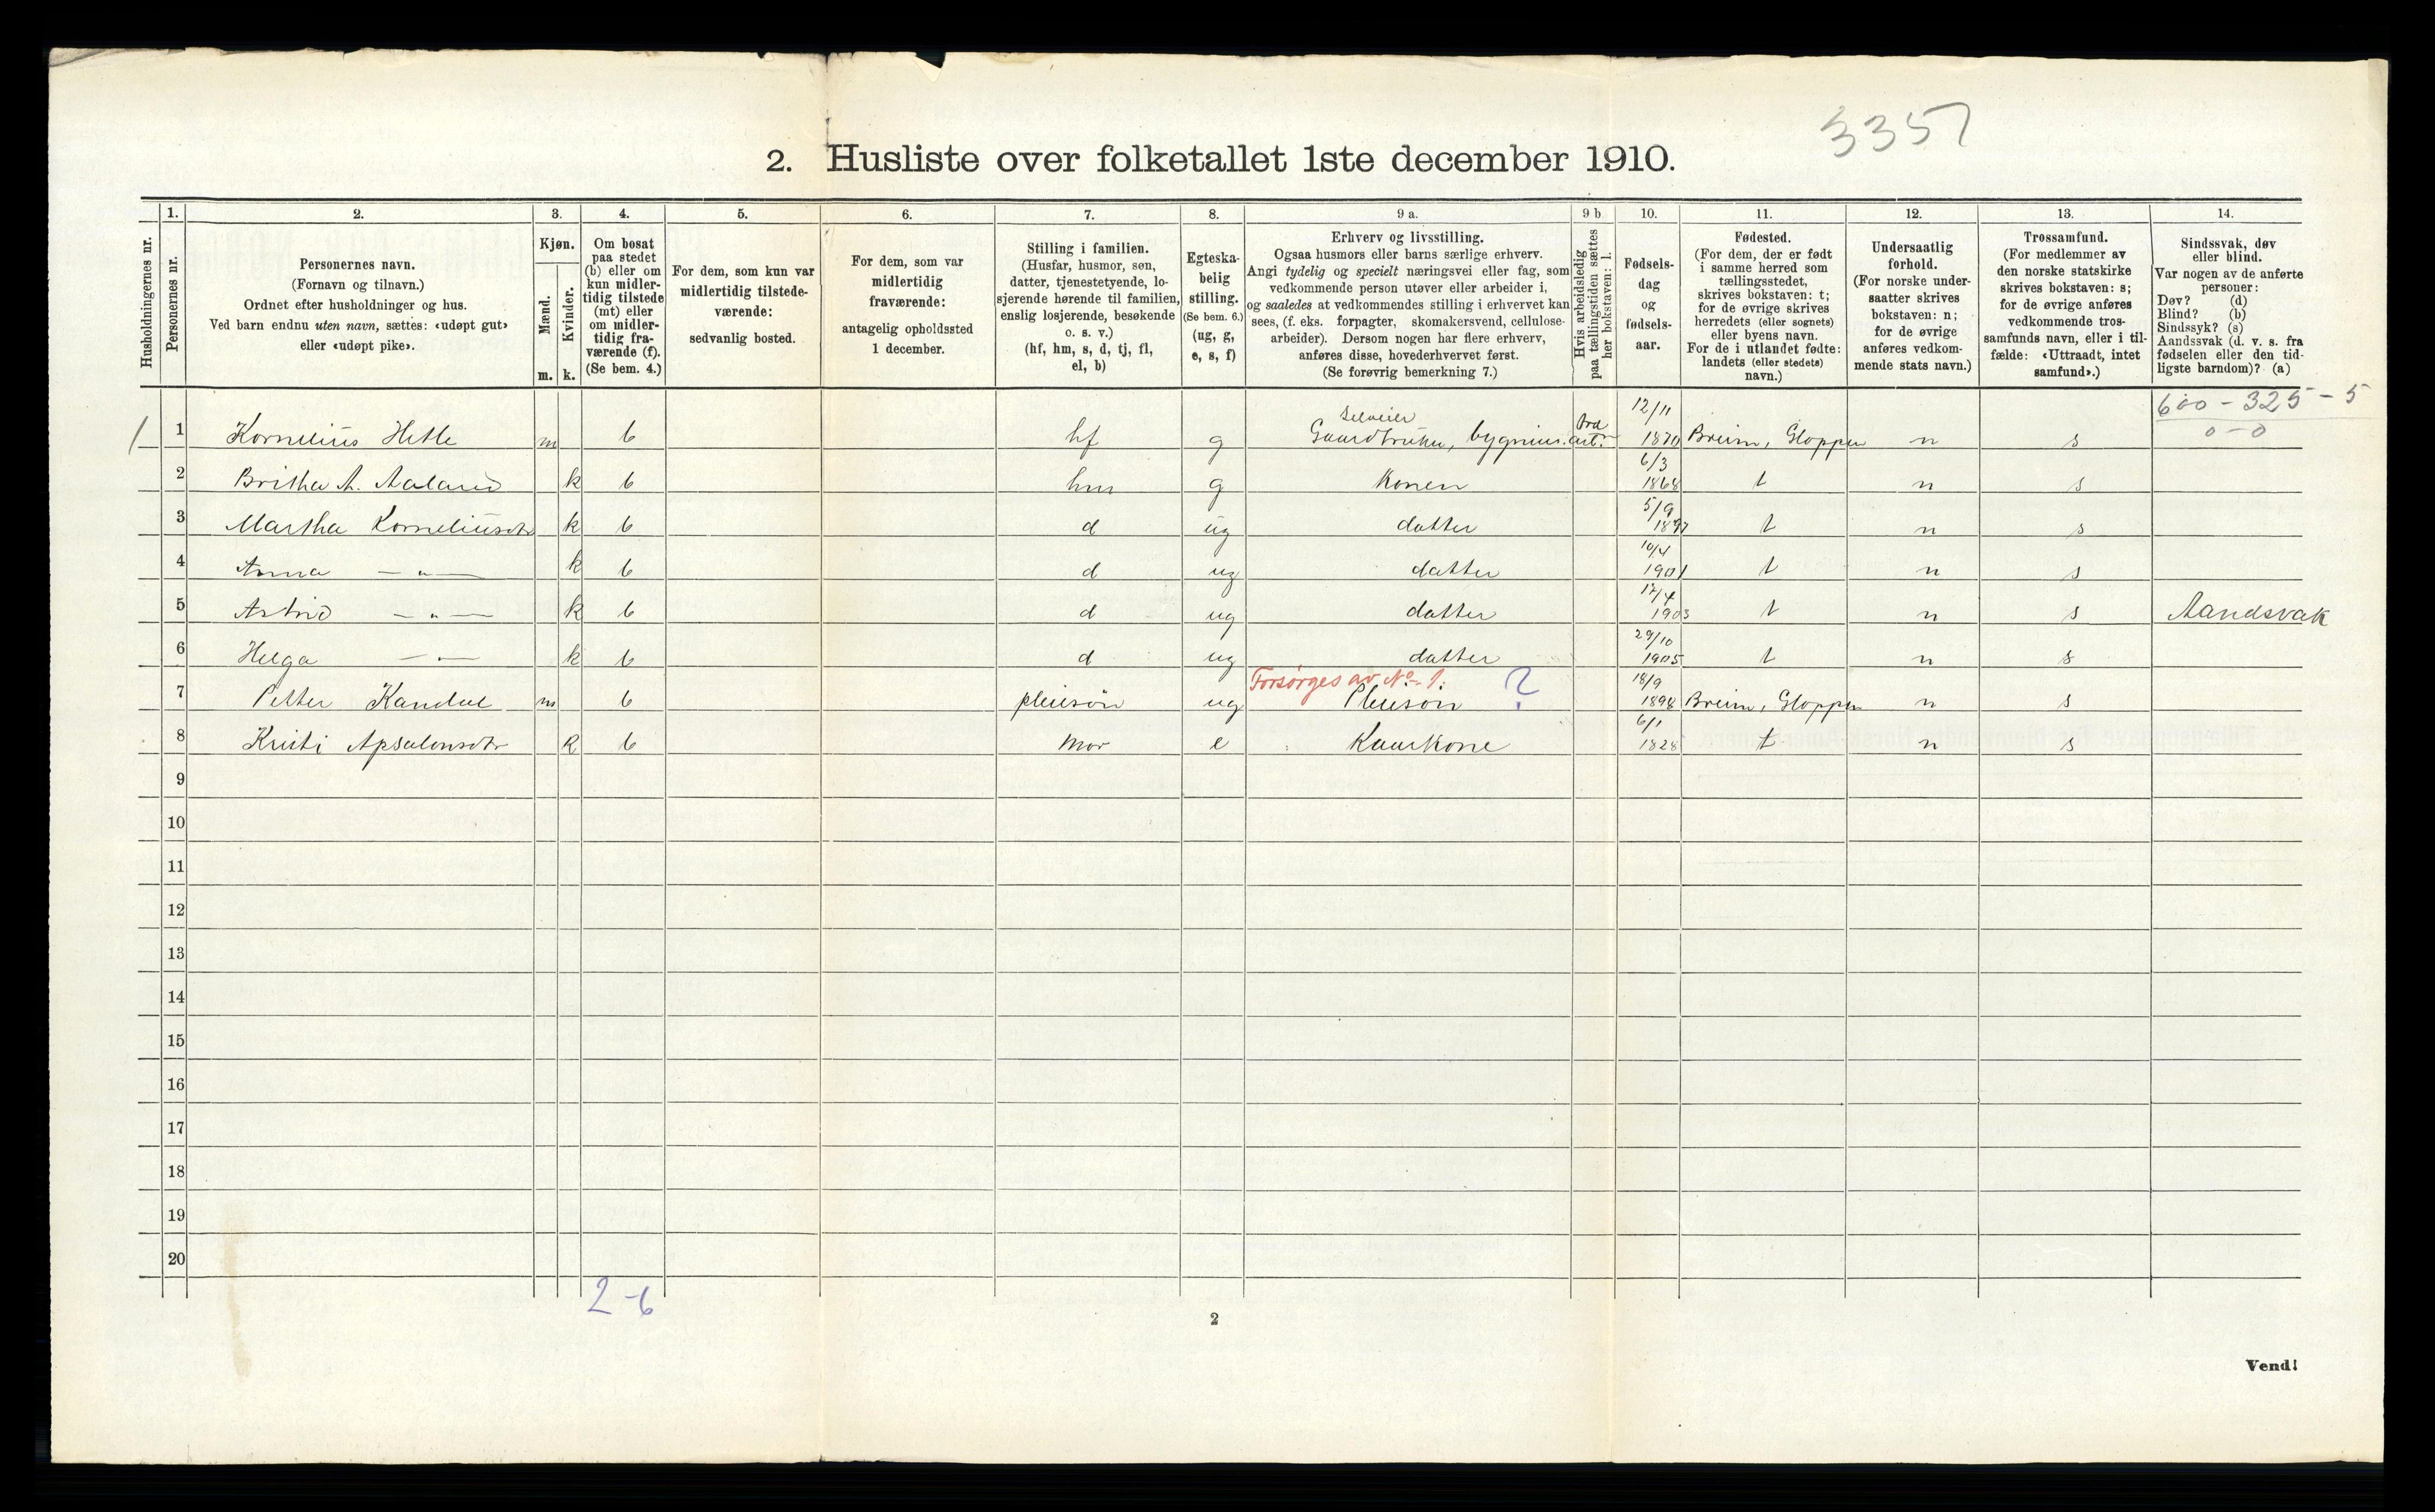 3357
2. Husliste over folketallet 1ste december 1910.
Husholdningernes nr.
1.
Personernes nr.
2.
Personernes navn.
(Fornavn og tilnavn.)
Ordnet efter husholdninger og hus.
Ved barn endnu uten navn, sættes: «udøpt gut»
eller «udøpt pike».
3.
Kjøn.
Mænd.
Kvinder.
m. k.
4.
Om bosat
paa stedet
(b) eller om
kun midler-
tidig tilstede
(mt) eller
om midler-
tidig fra-
værende (f).
(Se bem. 4.)
5.
For dem, som kun var
midlertidig tilstede-
værende:
sedvanlig bosted.
6.
For dem, som var
midlertidig
fraværende:
antagelig opholdssted
1 december.
7.
Stilling i familien.
(Husfar, husmor, søn,
datter, tjenestetyende, lo-
sjerende hørende til familien,
enslig losjerende, besøkende
o. s. v.)
(hf, hm, s, d, tj, fl,
el, b)
8.
Egteska-
belig
stilling.
(Se bem. 6.)
(ug, g,
e, s, f)
9 a.
Erhverv og livsstilling.
Ogsaa husmors eller barns særlige erhverv.
Angi tydelig og specielt næringsvei eller fag, som
vedkommende person utøver eller arbeider i,
og saaledes at vedkommendes stilling i erhvervet kan
sees, (f. eks. forpagter, skomakersvend, cellulose-
arbeider). Dersom nogen har flere erhverv,
anføres disse, hovederhvervet først.
(Se forøvrig bemerkning 7.)
9 b
Hvis arbeidsledig
paa tællingstiden sættes
her bokstaven: l.
10.
Fødsels-
dag
og
fødsels-
aar.
11.
Fødested.
(For dem, der er født
i samme herred som
tællingsstedet,
skrives bokstaven: t;
for de øvrige skrives
herredets (eller sognets)
eller byens navn.
For de i utlandet fødte:
landets (eller stedets)
navn.)
12.
Undersaatlig
forhold.
(For norske under-
saatter skrives
bokstaven: n;
for de øvrige
anføres vedkom-
mende stats navn.)
13.
Trossamfund.
(For medlemmer av
den norske statskirke
skrives bokstaven: s;
for de øvrige anføres
vedkommende tros-
samfunds navn, eller i til-
fælde: «Uttraadt, intet
samfund».)
14.
Sindssvak, døv
eller blind.
Var nogen av de anførte
personer:
Døv? (d)
Blind? (b)
Sindssyk? (s)
Aandssvak (d. v. s. fra
fødselen eller den tid-
ligste barndom)? (a)
600 - 325 - 5
0 - 0
Selveier 12/11
1 1 Kornelius Hetle m b hf g Gaardbruker, bygnins. arb. 1870 Breim, Gloppen n s
6/3
2 Britha A. Aaland k b hm g Konen 1868 t n s
5/9
3 Martha Korneliusdtr k b d ug datter 1897 t n s
10/4
4 Anna — " — k b d ug datter 1901 t n s
17/4
5 Astrid — " — k b d ug datter 1903 t n s Aandsvak
29/10
6 Helga — " — k b d ug datter 1905 t n s
Forsørges av No 1. ? 18/9
7 Petter Kandal m b pleiesøn ug Pleiesøn 1898 Breim, Gloppen n s
6/1
8 Kristi Apsalonsdtr k b Mor e Kaarkone 1828 t n s
9
10
11
12
13
14
15
16
17
18
19
20
2 - 6
2
Vend!